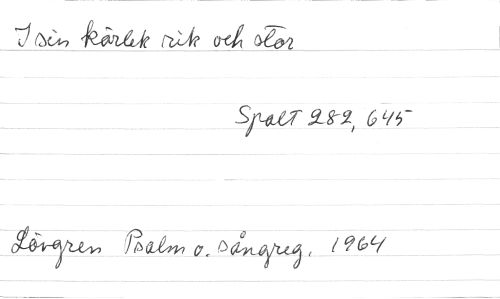 I sin kärlek rik och stor
Spalt 282, 645
Lövgren Psalm o. sångreg. 1964